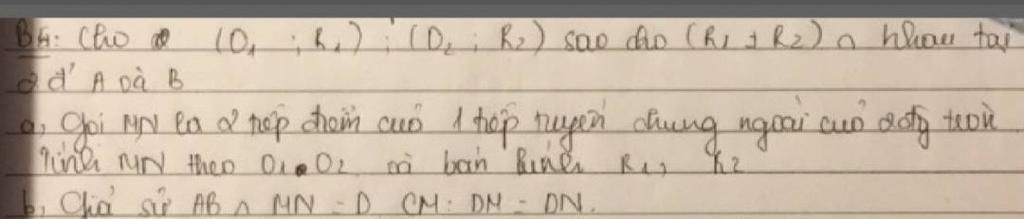 B4: Cho (O1 ; R1) ; (O2 ; R2) sao cho (R1 ≠ R2) ∩ nhau tại
2 đ' A và B
a, Gọi MN là 2 tiếp điểm của 1 tiếp tuyến chung ngoài của 2 đg tròn
Tính MN theo O1.O2 và bán kính R1, R2
b, Giả sử AB ∩ MN = D CM: DM = DN.